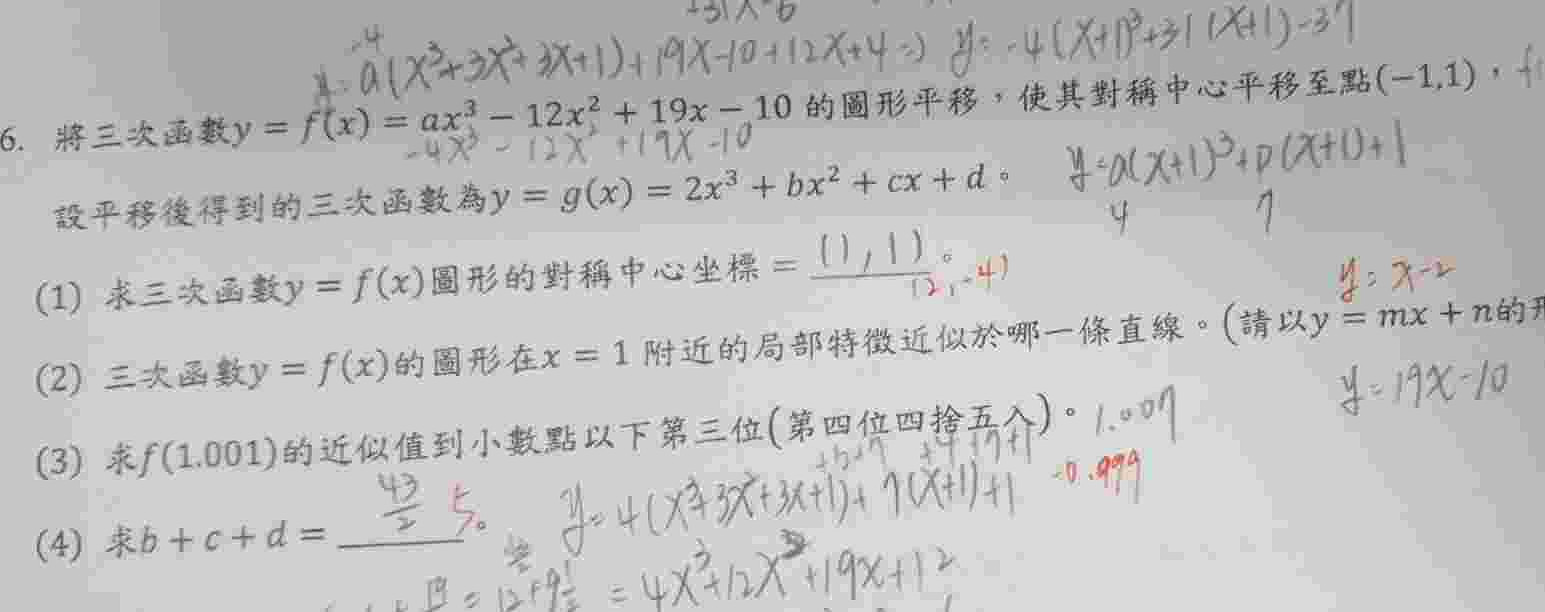 +31x-6
-4
y=a(x³+3x²+3x+1)+19x-10+12x+4 => y=-4(x+1)³+31(x+1)-37
6. 將三次函數y = f(x) = ax³ − 12x² + 19x − 10 的圖形平移，使其對稱中心平移至點(−1,1)，
-4x³-12x²+19x-10
y=a(x+1)³+p(x+1)+1
4 7
設平移後得到的三次函數為y = g(x) = 2x³ + bx² + cx + d。
(1) 求三次函數y = f(x)圖形的對稱中心坐標 = (1,1)。
(2,-4)
y=x-2
(2) 三次函數y = f(x)的圖形在x = 1 附近的局部特徵近似於哪一條直線。(請以y = mx + n的
y=19x-10
(3) 求f(1.001)的近似值到小數點以下第三位(第四位四捨五入)。1.007
-0.999
+4+7+1
(4) 求b + c + d = 43/2 5。
y=4(x³+3x²+3x+1)+7(x+1)+1
=4x³+12x²+19x+12